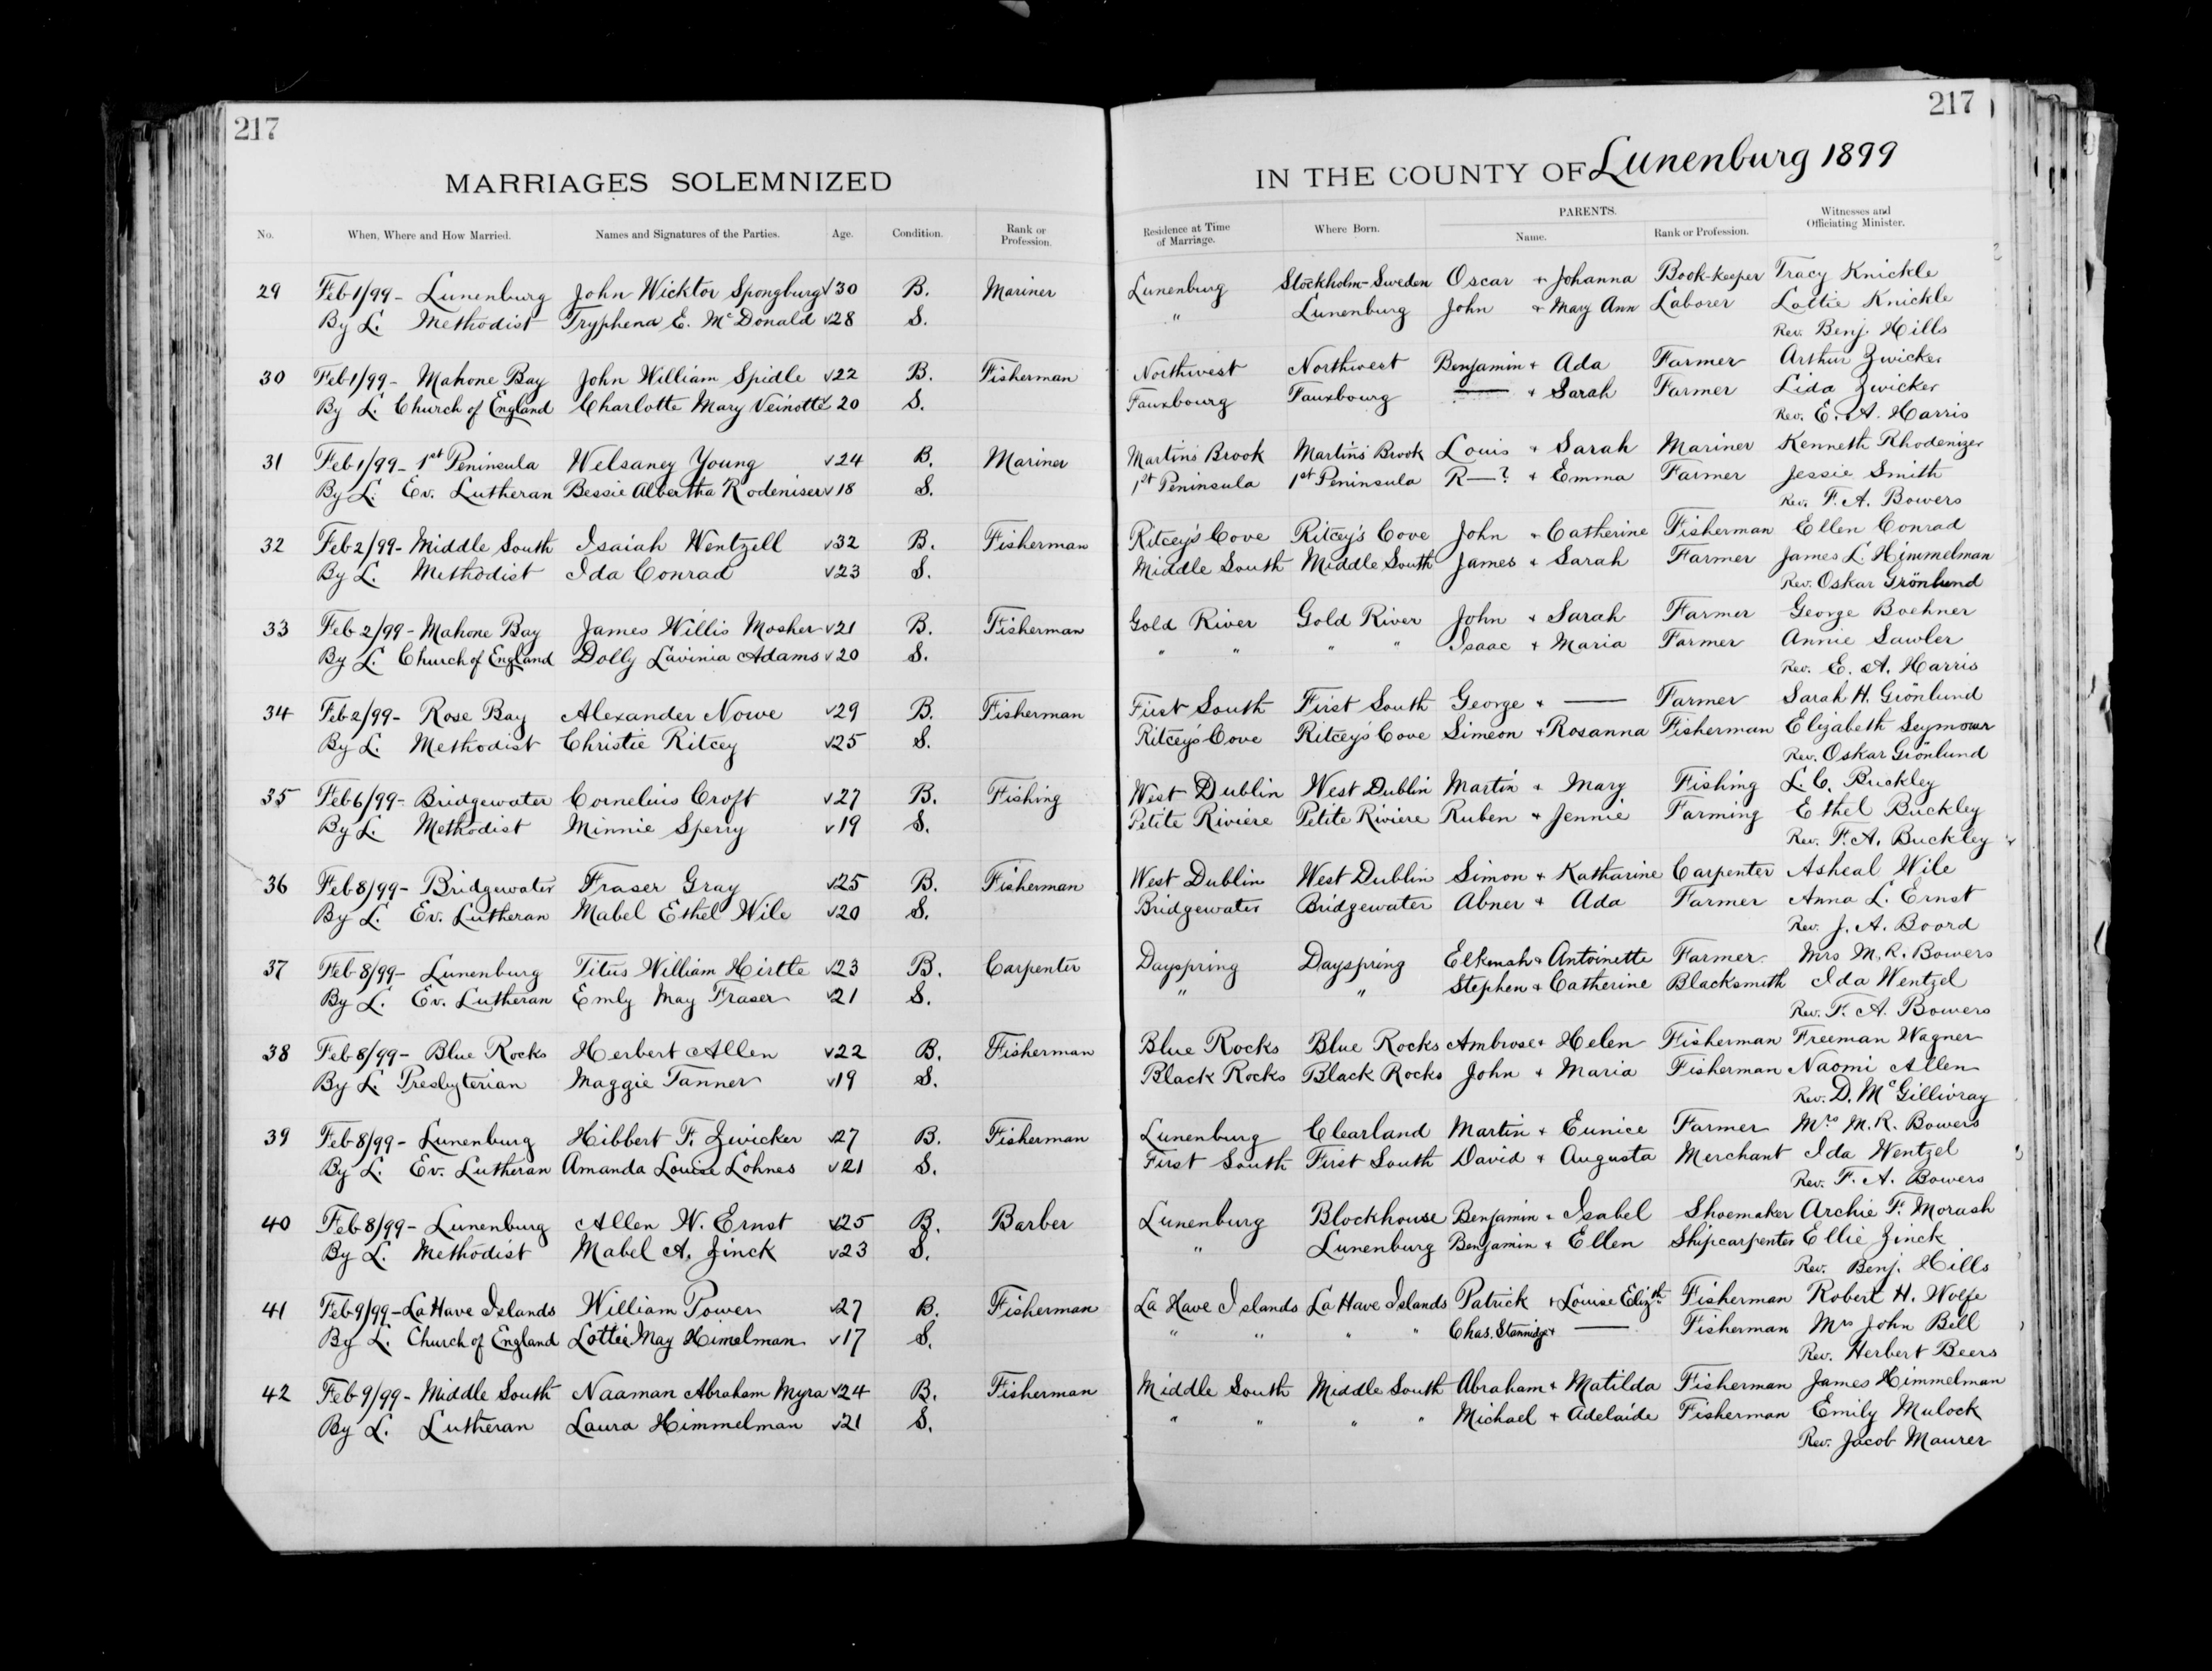 217
MARRIAGES SOLEMNIZED
No. When, Where and How Married. Names and Signatures of the Parties. Age. Condition. Rank or Profession.
29 Feb 1/99 - Lunenburg John Wicktor Spongburg √30 B. Mariner
By L. Methodist Tryphena E. McDonald √28 S.
30 Feb 1/99 - Mahone Bay John William Spidle √22 B. Fisherman
By L. Church of England Charlotte Mary Veinotte √20 S.
31 Feb 1/99 - 1st Peninsula Welsaney Young √24 B. Mariner
By L. Ev. Lutheran Bessie Albertha Rodeniser √18 S.
32 Feb 2/99 - Middle South Isaiah Wentzell √32 B. Fisherman
By L. Methodist Ida Conrad √23 S.
33 Feb 2/99 - Mahone Bay James Willis Mosher √21 B. Fisherman
By L. Church of England Dolly Lavinia Adams √20 S.
34 Feb 2/99 - Rose Bay Alexander Nowe √29 B. Fisherman
By L. Methodist Christie Ritcey √25 S.
35 Feb 6/99 - Bridgewater Cornelius Croft √27 B. Fishing
By L. Methodist Minnie Sperry √19 S.
36 Feb 8/99 - Bridgewater Fraser Gray √25 B. Fisherman
By L. Ev. Lutheran Mabel Ethel Wile √20 S.
37 Feb 8/99 - Lunenburg Titus William Hirtle √23 B. Carpenter
By L. Ev. Lutheran Emly May Fraser √21 S.
38 Feb 8/99 - Blue Rocks Herbert Allen √22 B. Fisherman
By L. Presbyterian Maggie Tanner √19 S.
39 Feb 8/99 - Lunenburg Hibbert F. Zwicker √27 B. Fisherman
By L. Ev. Lutheran Amanda Louise Lohnes √21 S.
40 Feb 8/99 - Lunenburg Allen W. Ernst √25 B. Barber
By L. Methodist Mabel A. Zinck √23 S.
41 Feb 9/99 - La Have Islands William Power √27 B. Fisherman
By L. Church of England Lottie May Himelman √17 S.
42 Feb 9/99 - Middle South Naaman Abraham Myra √24 B. Fisherman
By L. Lutheran Laura Himmelman √21 S.
217
IN THE COUNTY OF Lunenburg 1899
Residence at Time of Marriage. Where Born. PARENTS. Name. Rank or Profession. Witnesses and Officiating Minister.
Lunenburg Stockholm-Sweden Oscar + Johanna Book-keeper Tracy Knickle
" Lunenburg John + Mary Ann Laborer Lottie Knickle
Rev. Benj. Hills
Northwest Northwest Benjamin + Ada Farmer Arthur Zwicker
Fauxbourg Fauxbourg —— + Sarah Farmer Lida Zwicker
Rev. E. A. Harris
Martin's Brook Martin's Brook Louis + Sarah Mariner Kenneth Rhodenizer
1st Peninsula 1st Peninsula R—? + Emma Farmer Jessie Smith
Rev. F. A. Bowers
Ritcey's Cove Ritcey's Cove John + Catherine Fisherman Ellen Conrad
Middle South Middle South James + Sarah Farmer James L. Himmelman
Rev. Oskar Grönlund
Gold River Gold River John + Sarah Farmer George Boehner
" " " " Isaac + Maria Farmer Annie Sawler
Rev. E. A. Harris
First South First South George + —— Farmer Sarah H. Grönlund
Ritcey's Cove Ritcey's Cove Simeon + Rosanna Fisherman Elizabeth Seymour
Rev. Oskar Grönlund
West Dublin West Dublin Martin + Mary Fishing L. C. Buckley
Petite Riviere Petite Riviere Ruben + Jennie Farming Ethel Buckley
Rev. F. A. Buckley
West Dublin West Dublin Simon + Katharine Carpenter Asheal Wile
Bridgewater Bridgewater Abner + Ada Farmer Anna L. Ernst
Rev. J. A. Boord
Dayspring Dayspring Elkenah + Antoinette Farmer Mrs M. R. Bowers
" " Stephen + Catherine Blacksmith Ida Wentzel
Rev. F. A. Bowers
Blue Rocks Blue Rocks Ambrose + Helen Fisherman Freeman Wagner
Black Rocks Black Rocks John + Maria Fisherman Naomi Allen
Rev. D. McGillivray
Lunenburg Clearland Martin + Eunice Farmer Mrs M. R. Bowers
First South First South David + Augusta Merchant Ida Wentzel
Rev. F. A. Bowers
Lunenburg Blockhouse Benjamin + Isabel Shoemaker Archie F. Morash
" Lunenburg Benjamin + Ellen Shipcarpenter Ellie Zinck
Rev. Benj. Hills
La Have Islands La Have Islands Patrick + Louise Elizth Fisherman Robert H. Wolfe
" " " " Chas. Stannidge + —— Fisherman Mrs John Bell
Rev. Herbert Beers
Middle South Middle South Abraham + Matilda Fisherman James Himmelman
" " " " Michael + Adelaide Fisherman Emily Mulock
Rev. Jacob Maurer